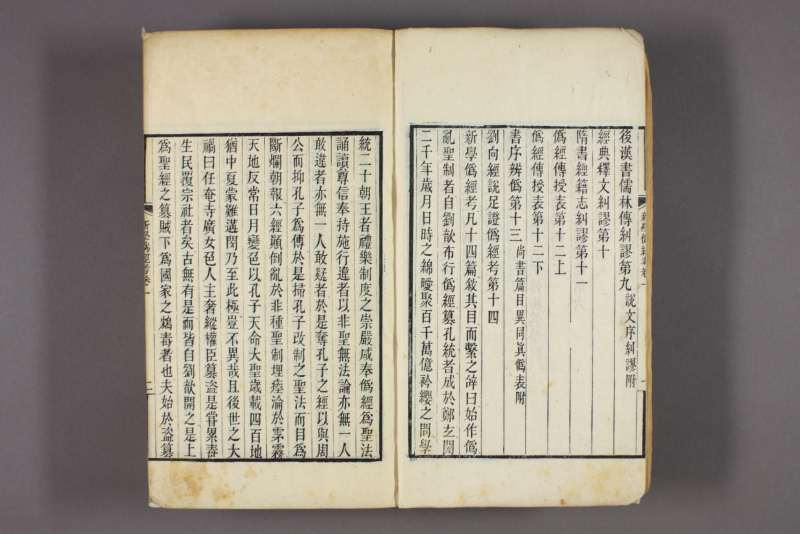 後漢書儒林傳糾謬第九 說文序糾謬附
經典釋文糾謬第十
隋書經籍志糾謬第十一
僞經傳授表第十二上
僞經傳授表第十二下
書序辨僞第十三 尚書篇目異同眞僞表附
劉向經說足證僞經考第十四
新學僞經考凡十四篇敘其目而繫之辭曰始作僞
亂聖制者自劉歆布行僞經篡孔統者成於鄭玄閱
二千年歲月日時之綿曖聚百千萬億衿纓之問學
統二十朝王者禮樂制度之崇嚴咸奉僞經爲聖法
誦讀尊信奉持施行違者以非聖無法論亦無一人
敢違者亦無一人敢疑者於是奪孔子之經以與周
公而抑孔子爲傳於是掃孔子改制之聖法而目爲
斷爛朝報六經顚倒亂於非種聖制埋瘞淪於雺霧
天地反常日月變色以孔子天命大聖歲載四百地
猶中夏蒙難遘閔乃至此極豈不異哉且後世之大
禍曰任奄寺廣女色人主奢縱權臣篡盜是嘗累毒
生民覆宗社者矣古無有是而皆自劉歆開之是上
爲聖經之篡賊下爲國家之鴆毒者也夫始於盜篡
新學僞經考卷一
二